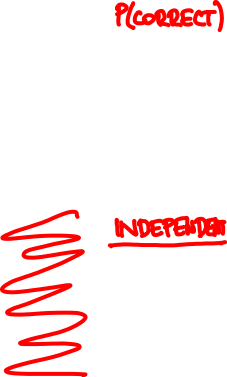 P(CORRECT)
INDEPENDENT